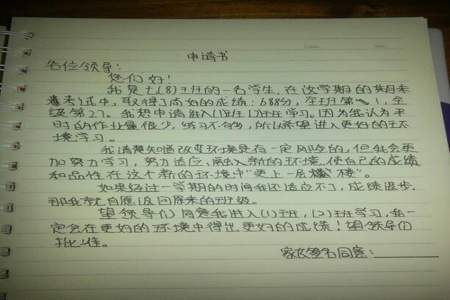 申请书
各位领导:
您们好!
我是七(8)班的一名学生,在这学期的期末
考试中,取得了尚好的成绩:688分,全班第1,全
级第27。我想申请进入(1)班(2)班学习。因为我认为平
时的作业量很少,练习不够多,所以希望进入更好的环
境学习。
我清楚知道改变环境是存一定风险的,但我会更
加努力学习,努力适应、融入新的环境,使自己的成绩
和品性在这个新的环境中“更上一层楼”。
如果经过一学期的时间我还适应不了,成绩退步,
那我就自愿返回原来的班级。
望领导们同意我进入(1)班,(2)班学习,我一
定会在更好的环境中得出更好的成绩!望领导们
批准。
家长签名同意: